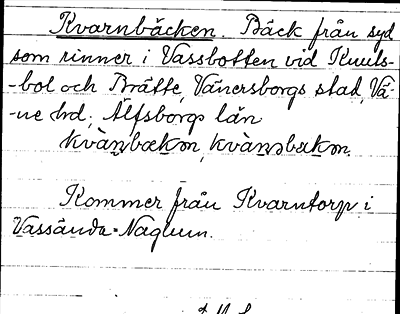 Kvarnbäcken. Bäck från syd
som rinner i Vassbotten vid Knuts-
-bol och Brätte, Vänersborgs stad, Vä-
-ne hd, Älfsborgs län
kvàṇbækən, kvàṇsbækən.
Kommer från Kvarntorp i
Vassända-Naglum.